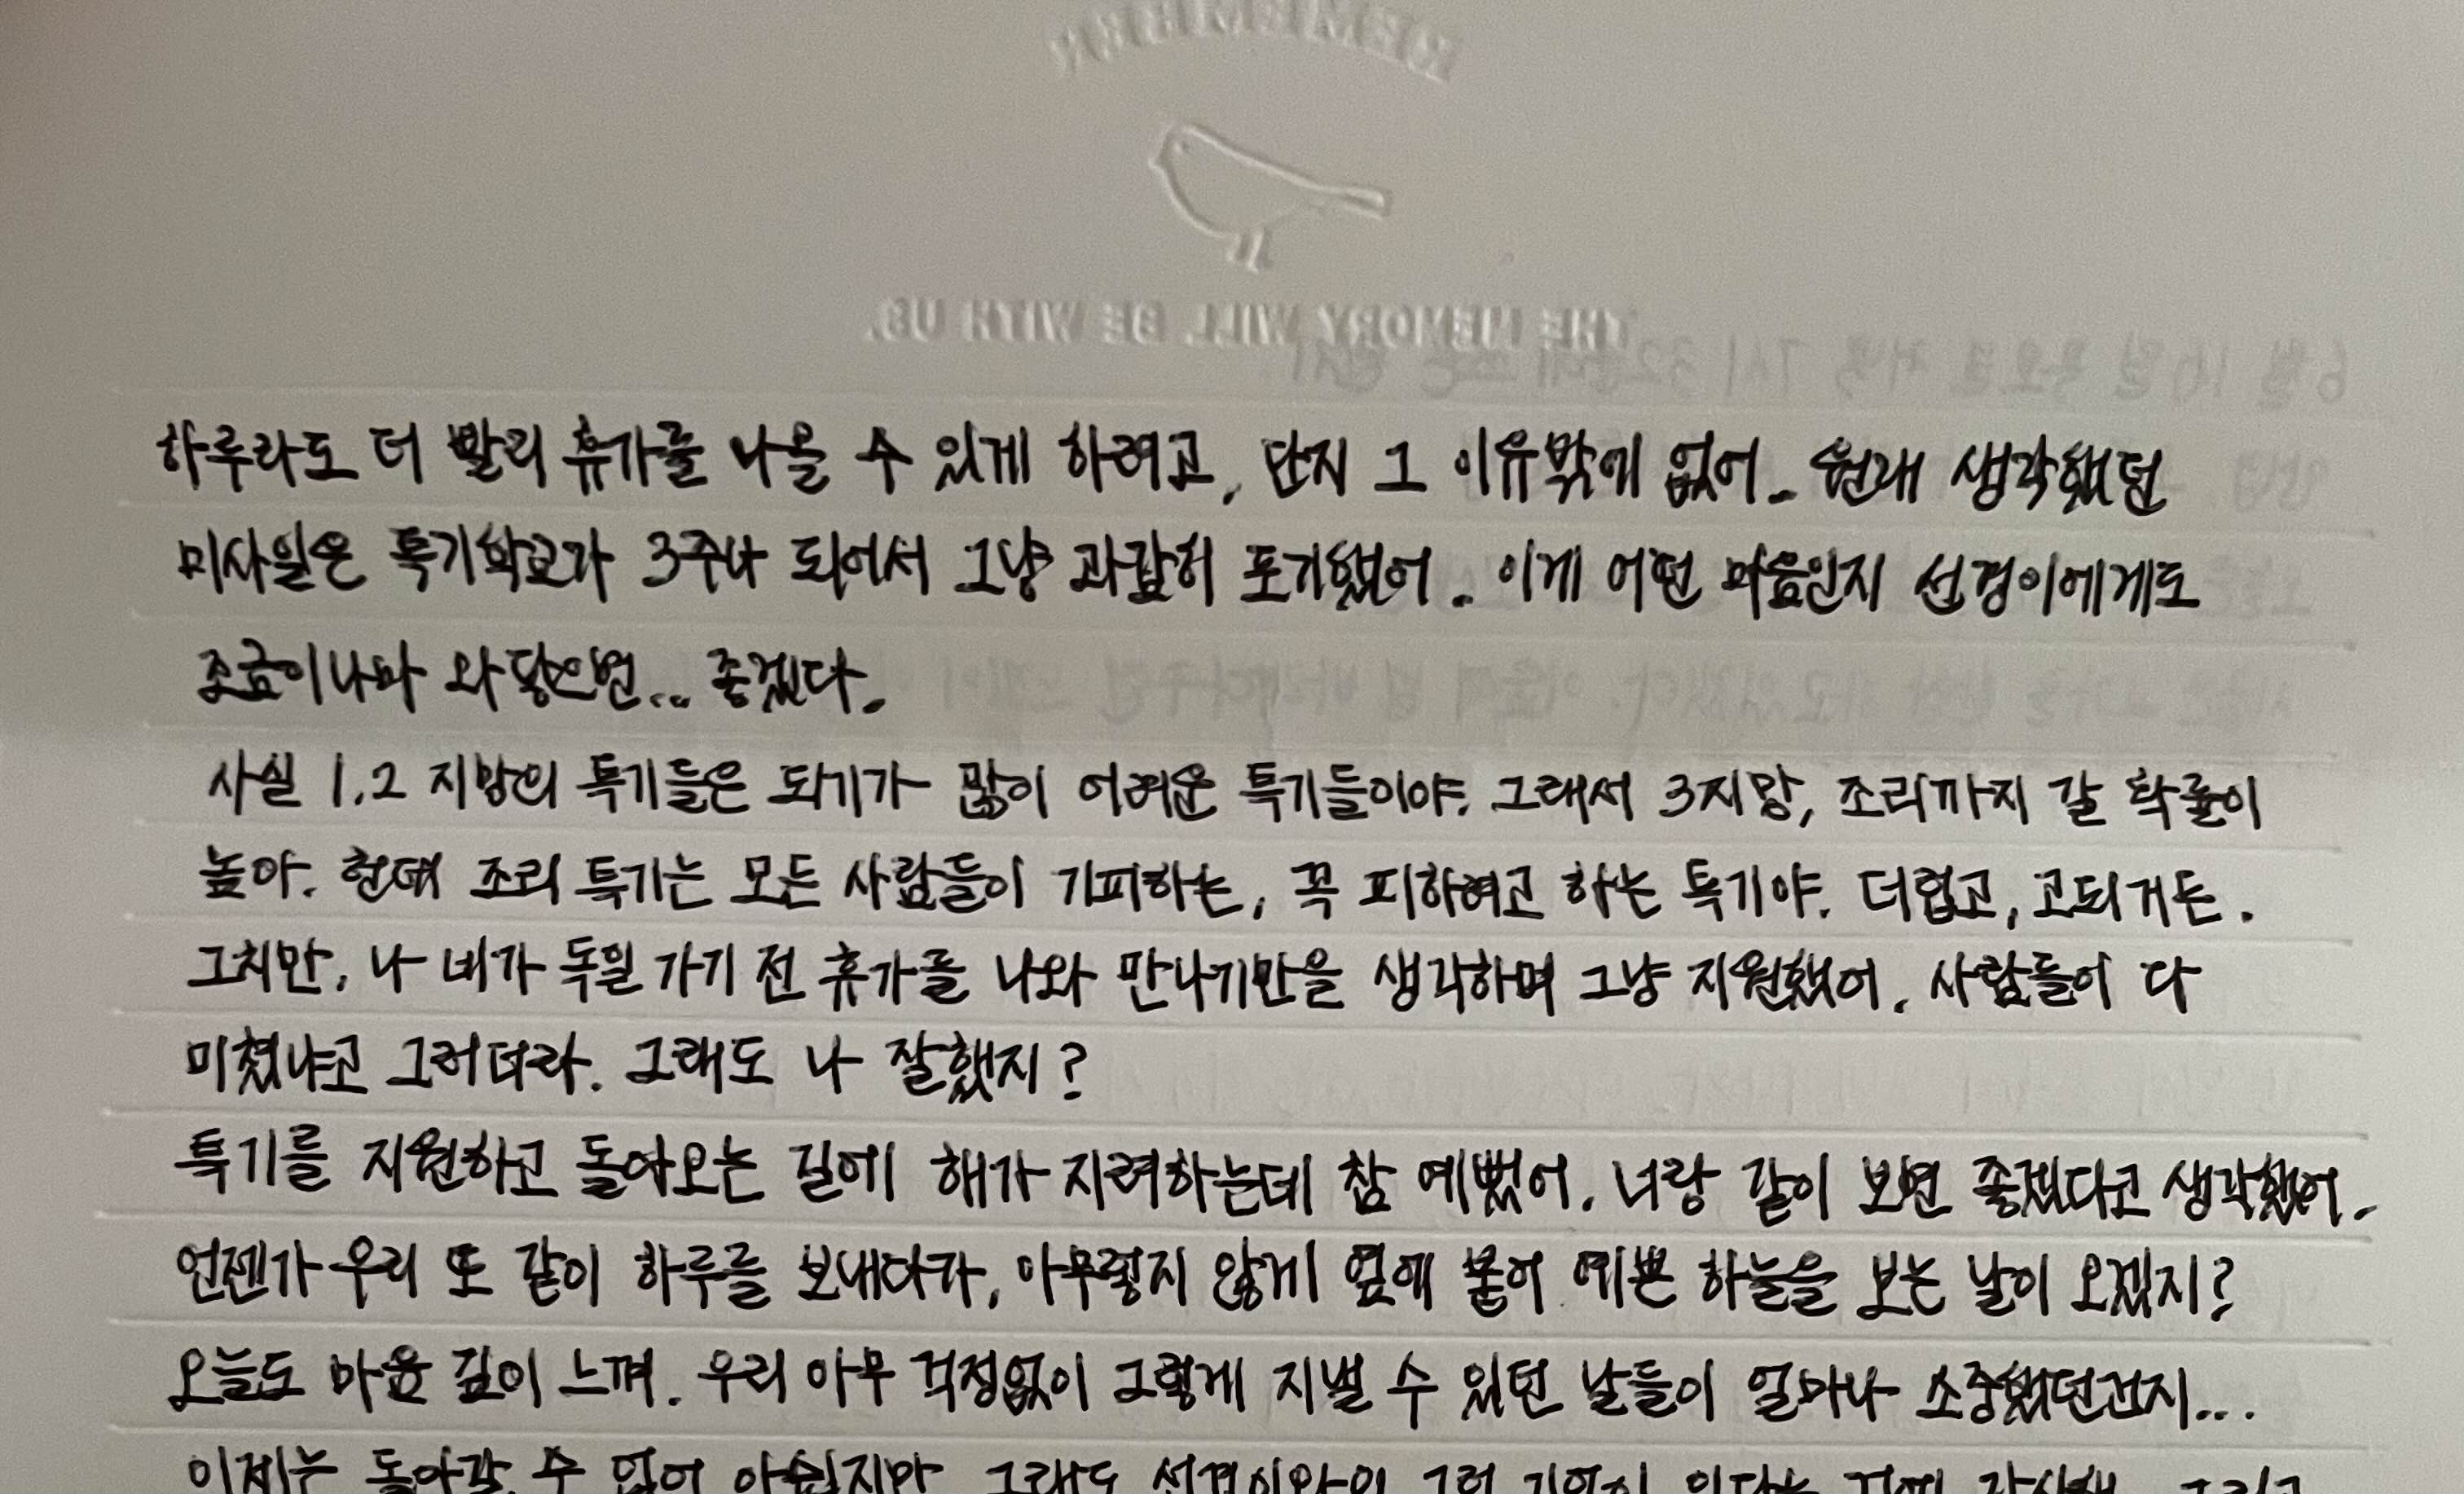 REMEMBER
THE MEMORY WILL BE WITH US.
6월 16일 목요일 저녁 7시 32분에 쓰는 편지
하루라도 더 빨리 휴가를 나올 수 있게 하려고, 단지 그 이유밖에 없어. 원래 생각했던
미사일은 특기학교가 3주나 되어서 그냥 과감히 포기했어. 이게 어떤 마음인지 선경이에게도
조금이나마 와닿으면... 좋겠다.
사실 1.2 지망의 특기들은 되기가 많이 어려운 특기들이야. 그래서 3지망, 조리까지 갈 확률이
높아. 헌데 조리 특기는 모든 사람들이 기피하는, 꼭 피하려고 하는 특기야. 더럽고, 고되거든.
그치만, 나 네가 독일 가기 전 휴가를 나와 만나기만을 생각하며 그냥 지원했어. 사람들이 다
미쳤냐고 그러더라. 그래도 나 잘했지?
특기를 지원하고 돌아오는 길에 해가 지려하는데 참 예뻤어. 너랑 같이 보면 좋겠다고 생각했어.
언젠가 우리 또 같이 하루를 보내다가, 아무렇지 않게 옆에 붙어 예쁜 하늘을 보는 날이 오겠지?
오늘도 마음 깊이 느껴. 우리 아무 걱정없이 그렇게 지낼 수 있던 날들이 얼마나 소중했던건지...
이제는 돌아갈 수 없어 아쉽지만 그래도 선경이와의 그런 기억이 있다는 것에 감사해. 그리고